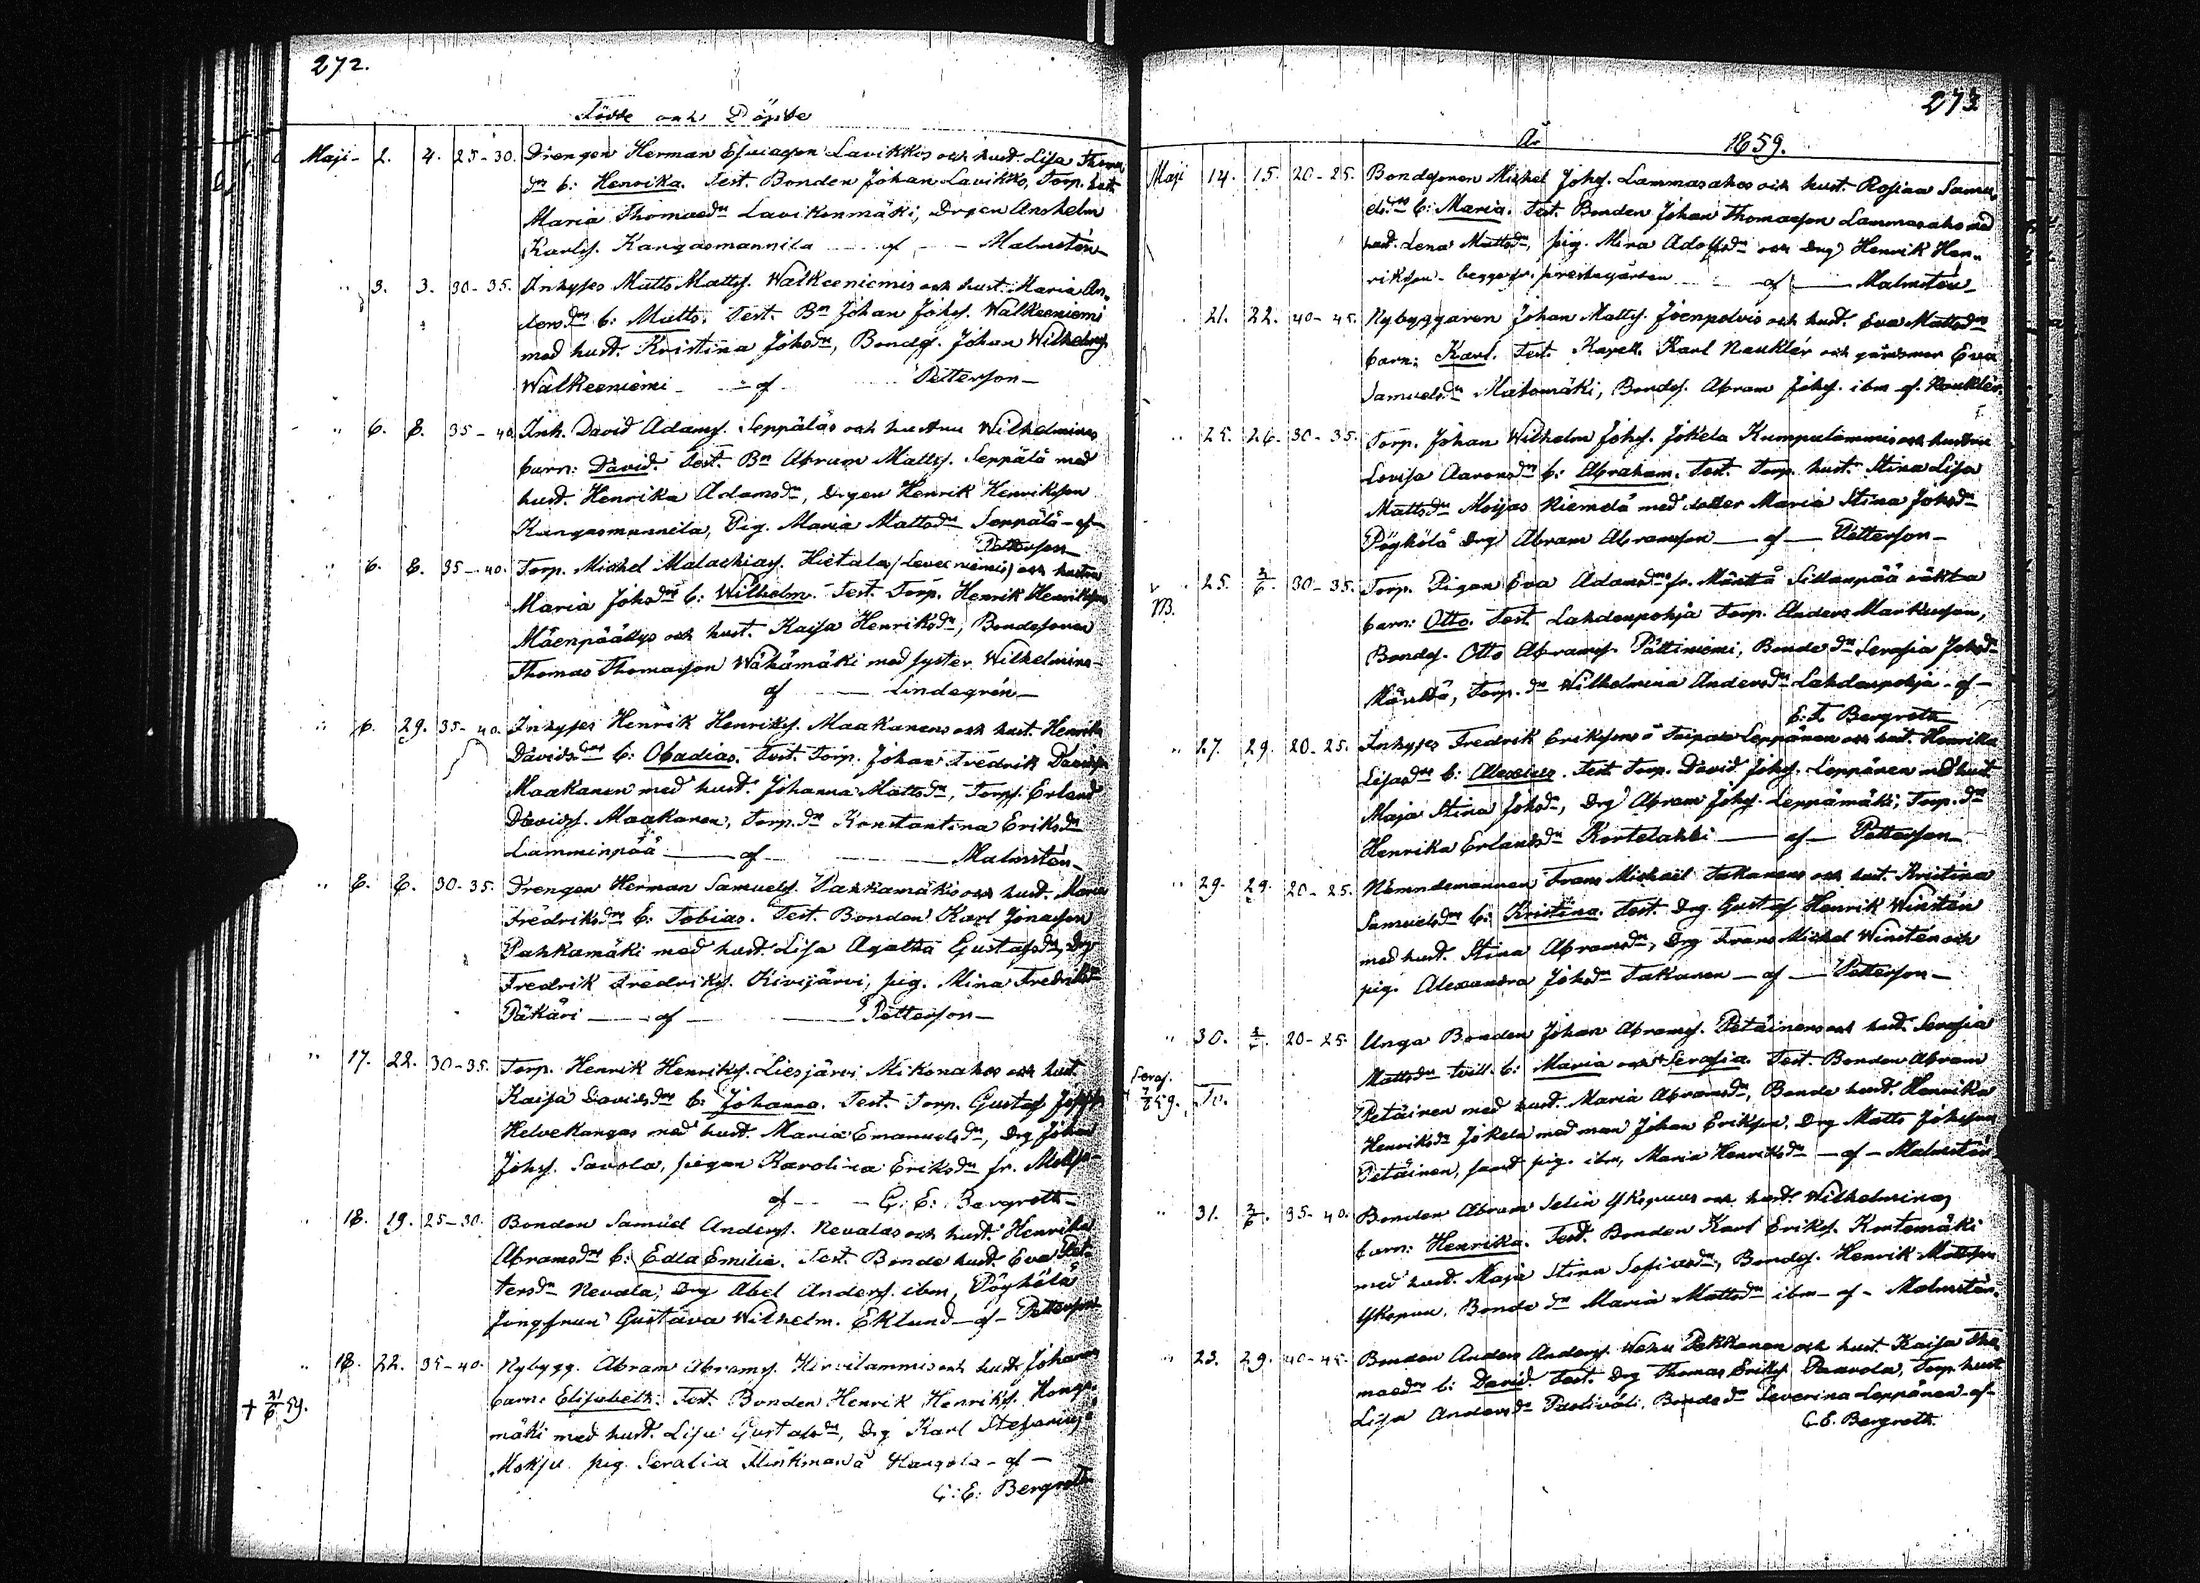 272.
Födde och Döpte
Maji - 2. 4. 25-30. Drengen Herman Esaiasson Lavikkos och hust. Lisa Thomas
dr b: Henrika. Test. Bonden Johan Lavikko, Torp. hust.
Maria Thomasdr Lavikonmäki, Drgen Anshelm
Karlss. Kangasmannila — af — Malmstén —
" 3. 3. 30-35. Inhyses Matts Mattss. Walkeeniemis och hust. Maria An-
dersdrs b: Matts. Test. Bn Johan Johss. Walkeeniemi
med hust. Kristina Johsdr, Bondes. Johan Wilhelmss.
Walkeeniemi — af Petterson —
" 6. 8. 35-40. Inh. David Adamss. Seppäläs och hustru Wilhelminas
barn: David. Test. Bn Abram Mattss. Seppälä med
hust. Henrika Adamsdr, Drgen Henrik Henriksson
Kangasmannila, Pig. Maria Mattsdr Seppälä - af -
Petterson —
" 6. 8. 35-40. Torp. Michel Malachiass. Hietala / Leveeniemis) och hustru
Maria Johsdrs b: Wilhelm. Test. Torp. Henrik Henriksson
Mäenpääkys och hust. Kaisa Henriksdr, Bondesonen
Thomas Thomasson Wähämäki med syster Wilhelmina —
af — Lindegrén —
" 6. 29. 35-40. Inhyses Henrik Henrikss. Maakanens och hust. Henrika
Davidsdrs b: Obadias. Test. Torp. Johan Fredrik Davidsson
Maakanen med hust. Johanna Mattsdr, Torps. Erland
Davidss. Maakanen, Torp. dr Konstantina Eriksdr
Lamminpää — af — Malmstén —
" 8. 8. 30-35. Drengen Herman Samuelss. Pahkamäkis och hust. Maria
Fredriksdrs b: Tobias. Test. Bonden Karl Jonasson
Pahkamäki med hust. Lisa Agatha Gustafsdr, Drg
Fredrik Fredrikss. Kivijärvi, pig. Mina Fredriksdr
Päkäri — af — Petterson —
" 17. 22. 30-35. Torp. Henrik Henrikss. Liesjärvi Mikonahos och hust.
Kaisa Davidsdrs b: Johanna. Test. Torp. Gustaf
Helvekangas med hust. Maria Emanuelsdr, Drg Johan
Johss. Savola, pigan Karolina Eriksdr fr. Moksu —
af — G: E: Bergroth —
" 18. 19. 25-30. Bonden Samuel Anderss. Nevalas och hust. Henrika
Abramsdrs b: Edla Emilia. Test. Bonde hust. Eva Pet-
tersdr Nevala, Drg Abel Anderss. ibm, Pöyhölä
Jungfrun Gustava Wilhelm. Eklund - af - Petterson
" 18. 22. 35-40. Nybygg. Abram Abramss. Hirvilammis och hust. Johannas
+ 21/6 59. barn: Elisabeth. Test. Bonden Henrik Henrikss. Honga-
mäki med hust. Lisa Gustafsdr, Drg Karl Stefanuss.
Moksu pig. Serafia Hangola - af -
G: E: Bergroth
273
År 1859.
Maji 14. 15. 20-25. Bondesonen Michel Johss. Lammasahos och hust. Rosina Samu-
elsdrs b: Maria. Test. Bonden Johan Thomasson Lammasaho med
hust. Lena Mattsdr, pig. Mina Adolfsdr och Drg Henrik Hen-
riksson - begge fr. prestegården — af — Malmstén —
" 21. 22. 40-45. Nybyggaren Johan Mattss. Joenpolvis och hust. Eva Mattsdrs
barn: Karl. Test. Kapell. Karl Nauklér och Eva
Samuelsdr Matomäki, Bondes. Abram Johss. ibm - af - Nauklér.
" 25. 26. 30-35. Torp. Johan Wilhelm Johss. Jokela Kumpulammis och hustru
Lovisa Aaronsdrs b: Abraham. Test. Torp. hust. Stina Lisa
Mattsdr Moijas Niemelä med dotter Maria Stina Johsdr
Pöyhölä Drg Abram Abramsson — af — Petterson —
NB. " 25. 2/6 30-35. Torp. Pigan Eva Adamsdrs fr. Mänttä Sillanpää oäkta
barn: Otto. Test. Lahdenpohja Torp. Anders Markusson,
Bondes. Otto Abramss. Pättiniemi, Bonde dr Serafia Johsdr
Mänttä, Torp. dr Wilhelmina Andersdr Lahdenpohja - af -
G: E. Bergroth
" 27. 29. 20-25. Inhyses Fredrik Erikssons å Taipale Leppänen och hust. Henrika
Lisasdrs b: Alexius. Test. Torp. David Johss. Leppänen med hust.
Maja Stina Johsdr, Drg Abram Johss. Leppämäki, Torp. dr
Henrika Erlandsdr Kortelahti — af — Petterson —
" 29. 29. 20-25. Nämndemannen Frans Michaël Takanens och hust. Kristina
Samuelsdrs b: Kristina. Test. Drg. Gustaf Henrik Winstén
med hust. Stina Abramsdr, Drg Frans Michel Winstén och
pig. Alexandra Johsdr Takanen — af — Petterson —
" 30. 20-25. Unga Bonden Johan Abramss. Petäinens och hust. Serafia
Mattsdrs tvill. b: Maria och Serafia. Test. Bonden Abram
Seraf. 7/8 59. Tv. Petäinen med hust. Maria Abramsdr, Bonde hust. Henrika
Henriksdr Jokela med man Johan Eriksson, Drg Matts Johsson
Petäinen, samt pig. ibm, Maria Henriksdr — af — Malmstén
" 31. 35-40. Bonden Abram Selin Ykspuus och hust. Wilhelminas
barn: Henrika. Test. Bonden Karl Erikss. Kortemäki
med hust. Maja Stina Sofiasdr, Bondes. Henrik Mattsson
Ykspuu, Bonde dr Maria Mattsdr ibm - af - Malmstén.
" 23. 29. 40-45. Bonden Anders Anderss. Pekkanen och hust. Kaisa Tho-
masdrs b: David. Test. Drg Thomas Erikss. Paavola, Torp. hust
Lisa Andersdr Bonde dr Severina Leppänen - af -
G. E. Bergroth.